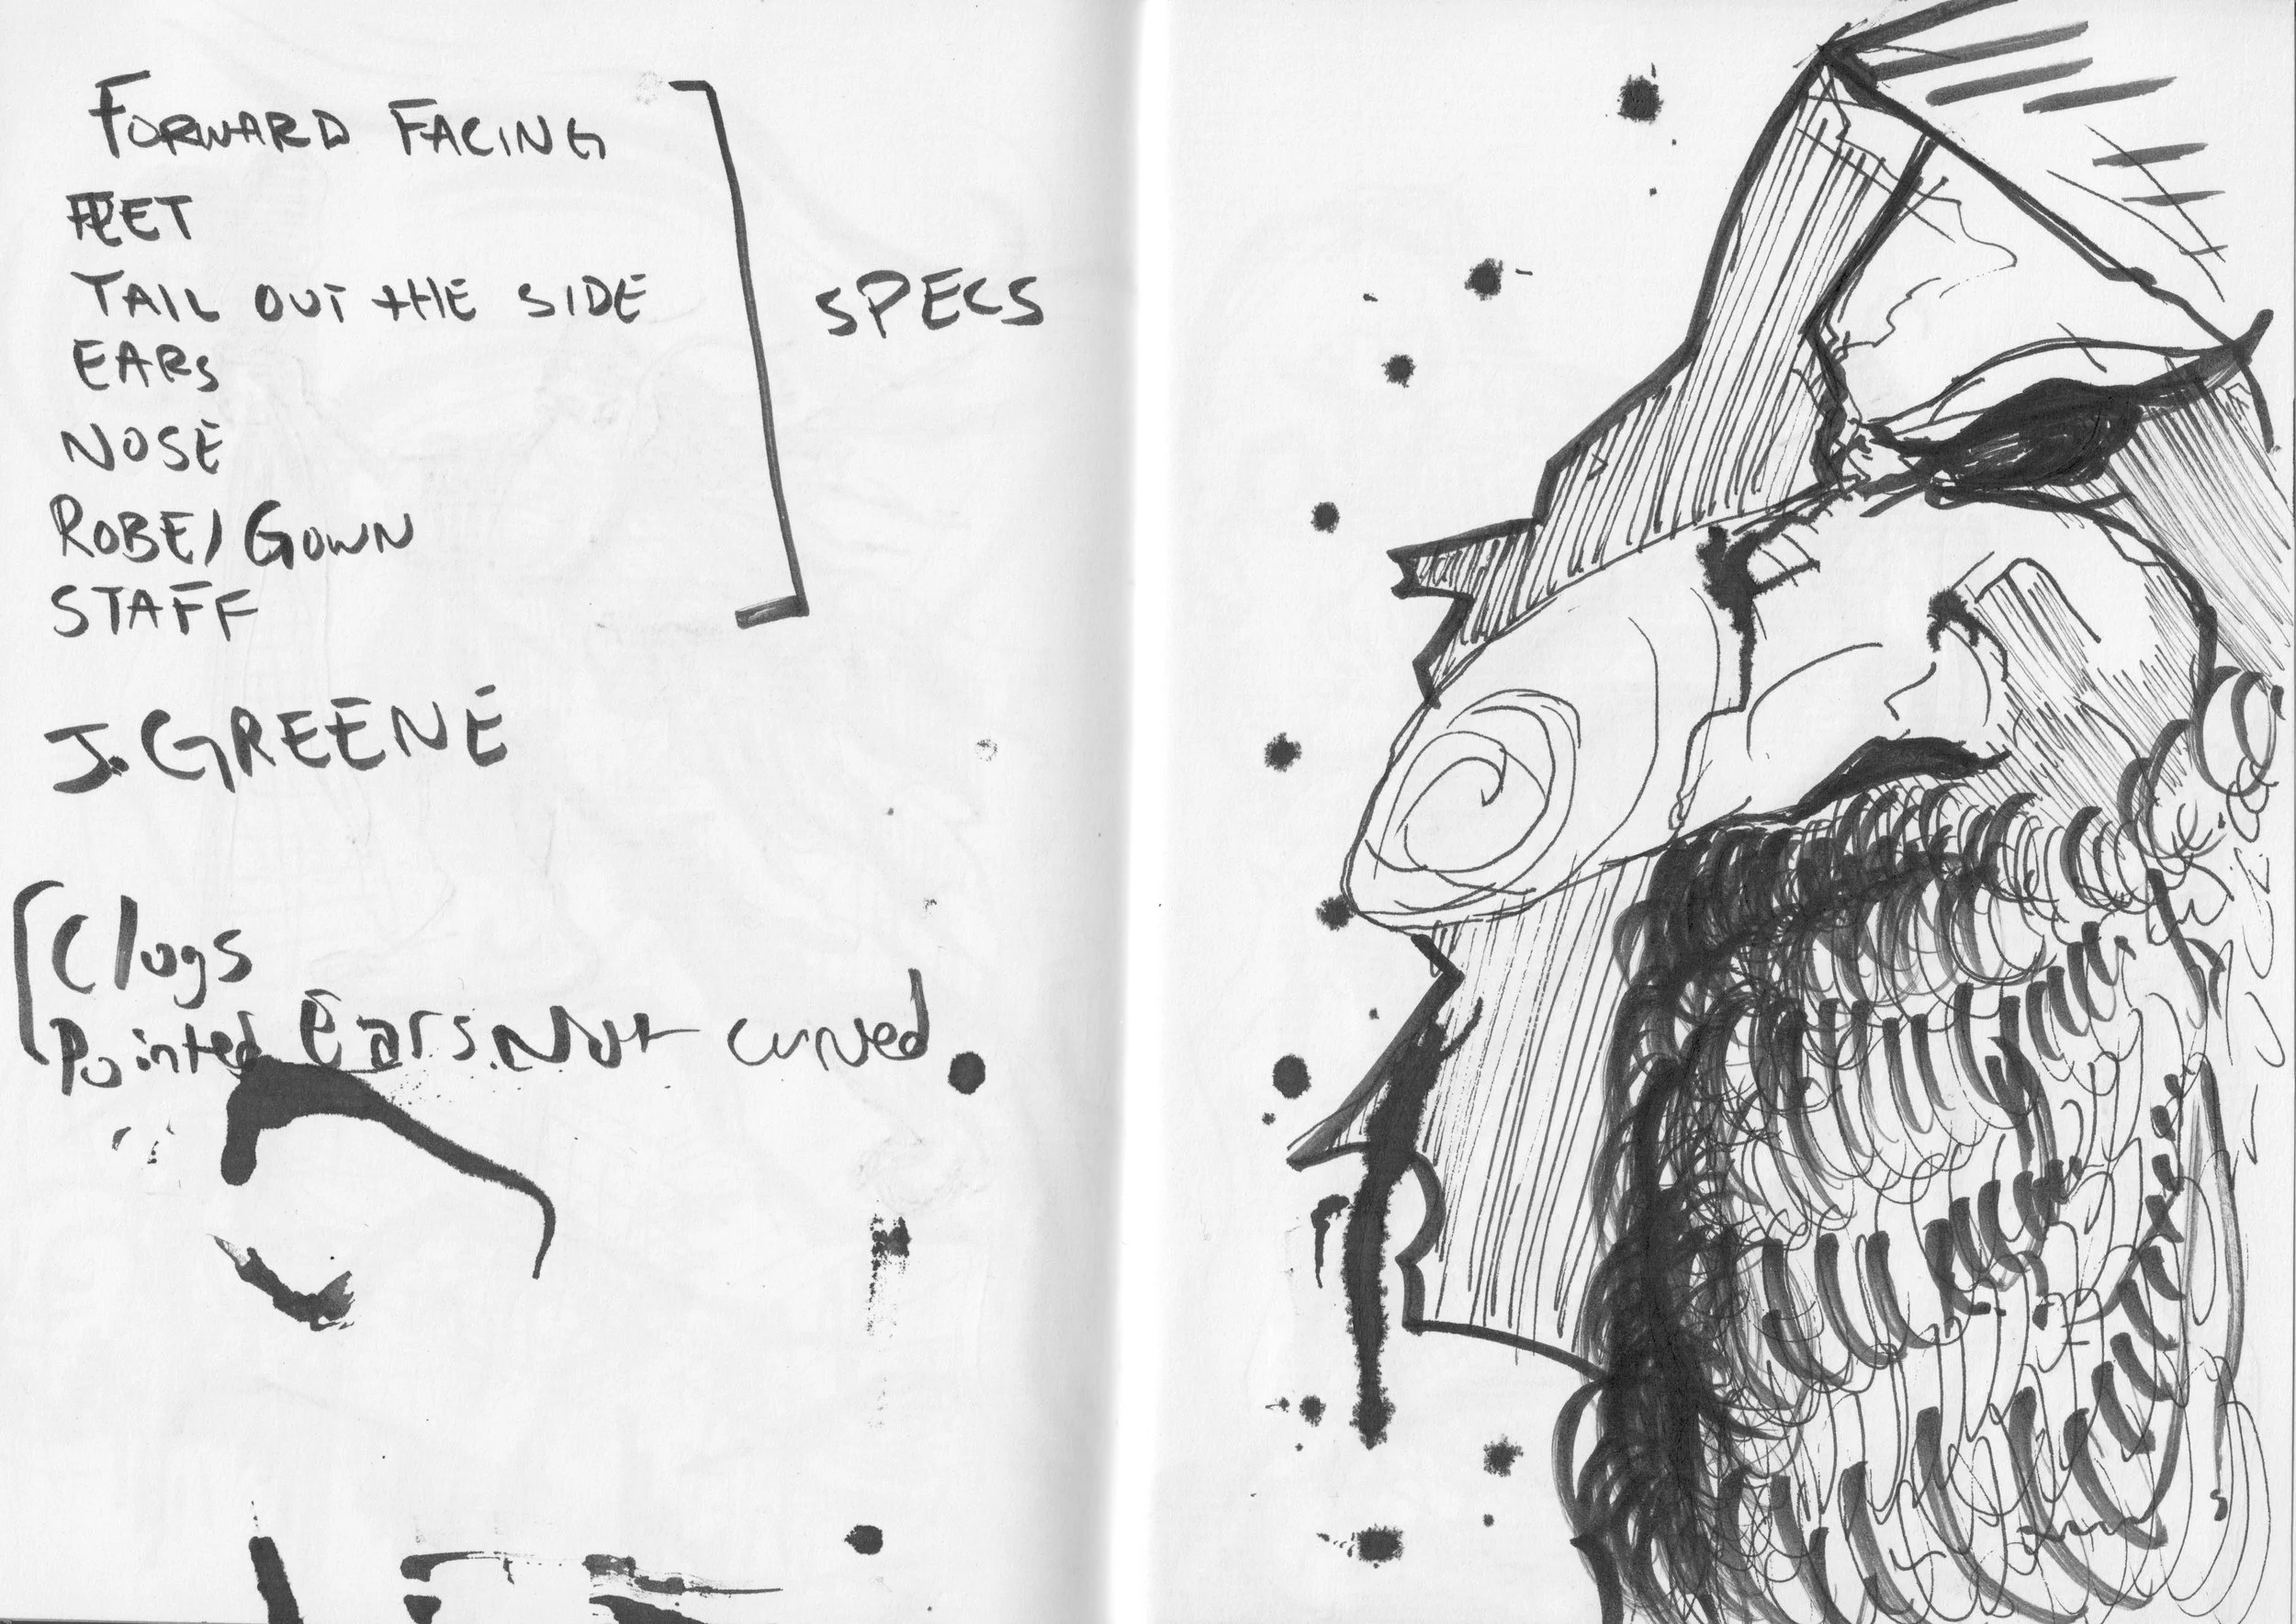 FORWARD FACING
FEET
TAIL OUT THE SIDE
EARS
NOSE
ROBE/GOWN
STAFF
SPECS
J. GREENE
Clogs
Pointed Ears. Not curved.